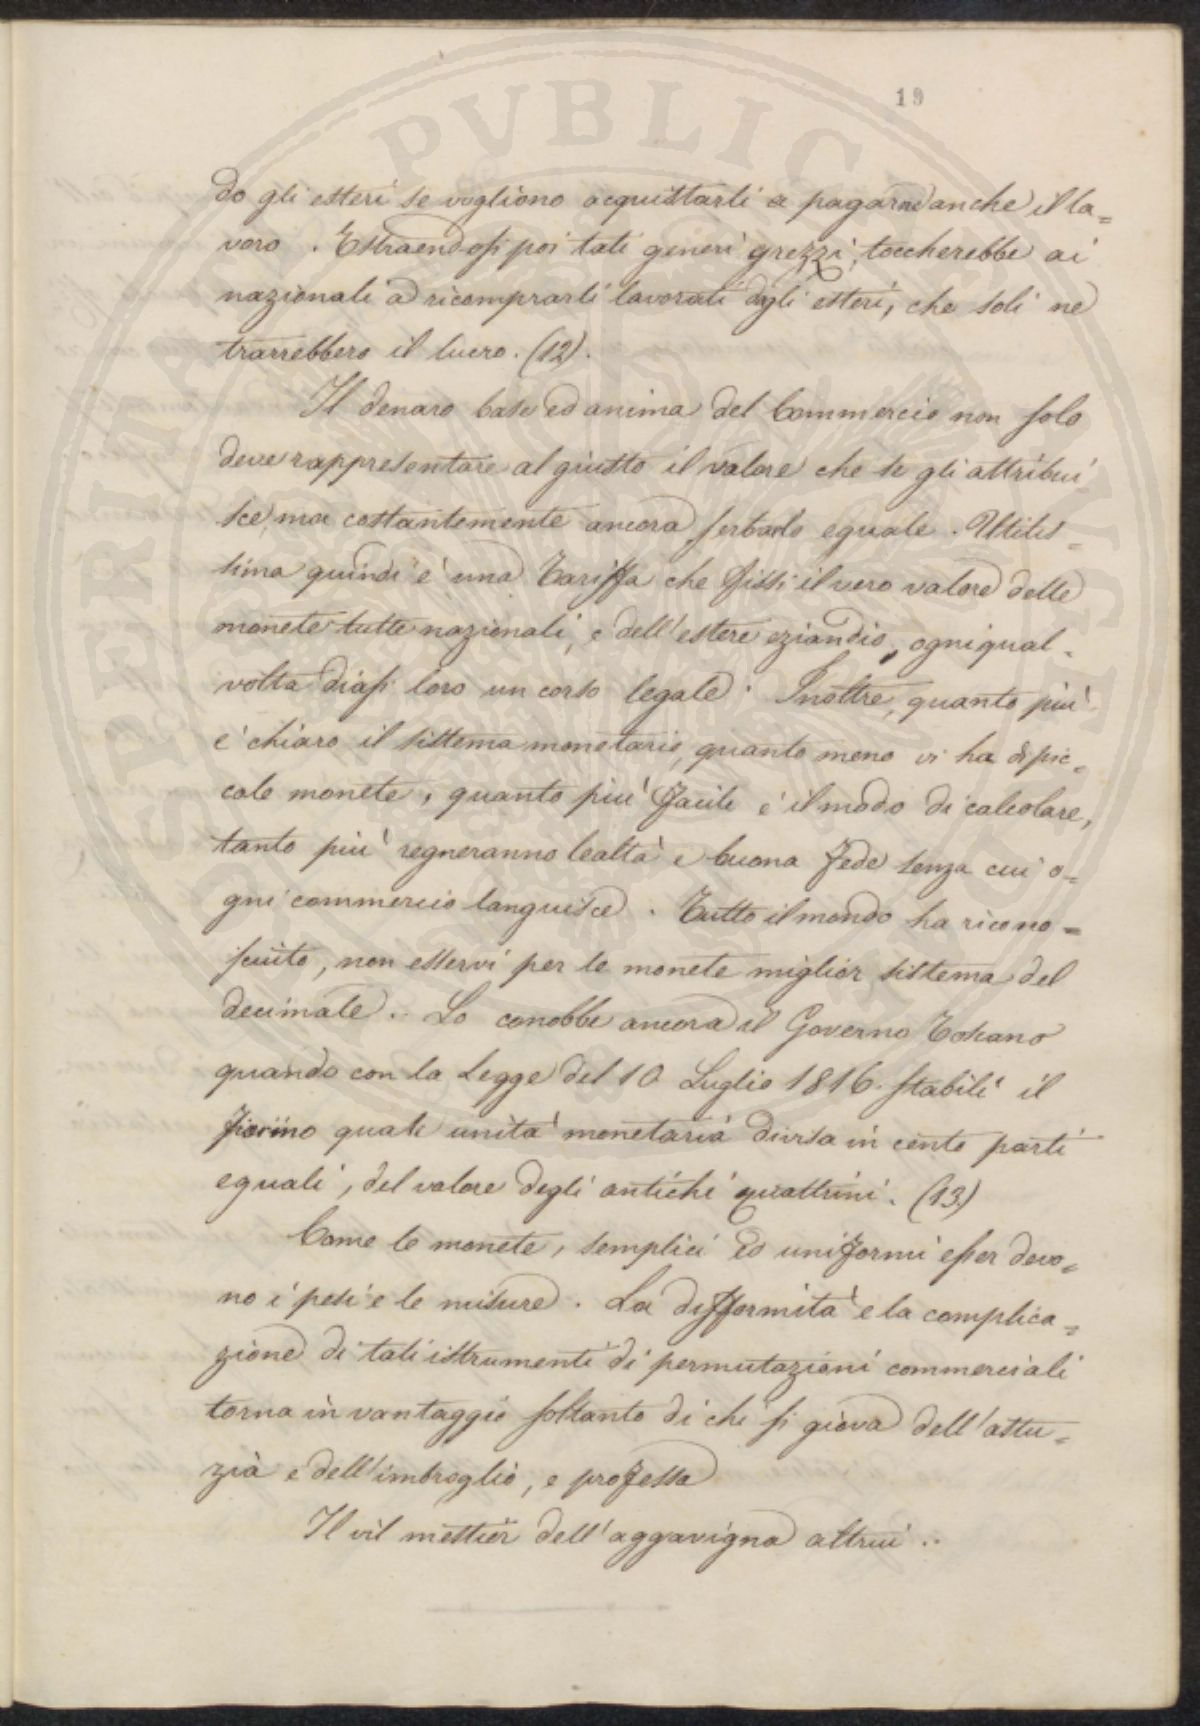 19
do gli esteri se vogliono acquistarli a pagarne anche il la=
voro. Estraendosi poi tali generi grezzi, toccherebbe ai
nazionali a ricomprarli lavorati dagli esteri, che soli ne
trarrebbero il lucro. (12).
Il denaro base ed anima del Commercio non solo
deve rappresentare al giusto il valore che se gli attribui
sce, ma costantemente ancora serbarlo eguale. Utilis-
sima quindi è una Tariffa che fissi il vero valore delle
monete tutte nazionali, e dell'estere eziandio, ogni qual-
volta diasi loro un corso legale. Inoltre, quanto più
è chiaro il sistema monetario, quanto meno vi ha di pic=
cole monete, quanto più facile è il modo di calcolare,
tanto più regneranno lealtà e buona fede senza cui o=
gni commercio languisce. Tutto il mondo ha ricono=
sciuto, non esservi per le monete miglior sistema del
decimale.. Lo conobbe ancora il Governo Toscano
quando con la Legge del 10 Luglio 1816. stabilì il
fiorino quale unità monetaria divisa in cento parti
eguali, del valore degli antichi quattrini. (13.)
Come le monete, semplici ed uniformi esser devo=
no i pesi e le misure. La difformità e la complica=
zione di tali istrumenti di permutazioni commerciali
torna in vantaggio soltanto di chi si giova dell'astu=
zia e dell'imbroglio, e professa
Il vil mestier dell'aggavigna altrui..
PERINSIGNE PVBLIC